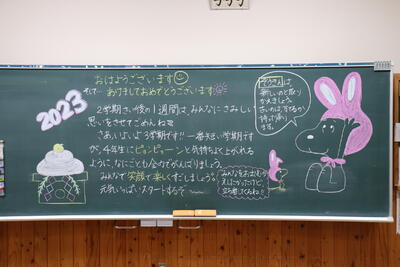 おはようございます
そして… あけましておめでとうございます
2023
2学期さい後の1週間は、みんなにさみしい
思いをさせてごめんね
さあ、いよいよ3学期です!! 一番短い学期です
が、4年生にピョンピョーンと気持ちよく上がれる
ように、なにごとも全力でがんばりましょう。
みんなで笑顔で楽しくすごしましょう。
元気いっぱいスタートするぞ〜
ぞうきんは、
新しいのと取り
かえましょう。
古いのは、
持って帰り
ます。
みんなをお出むか
えしたかったけど、
立ち番してくるね!!